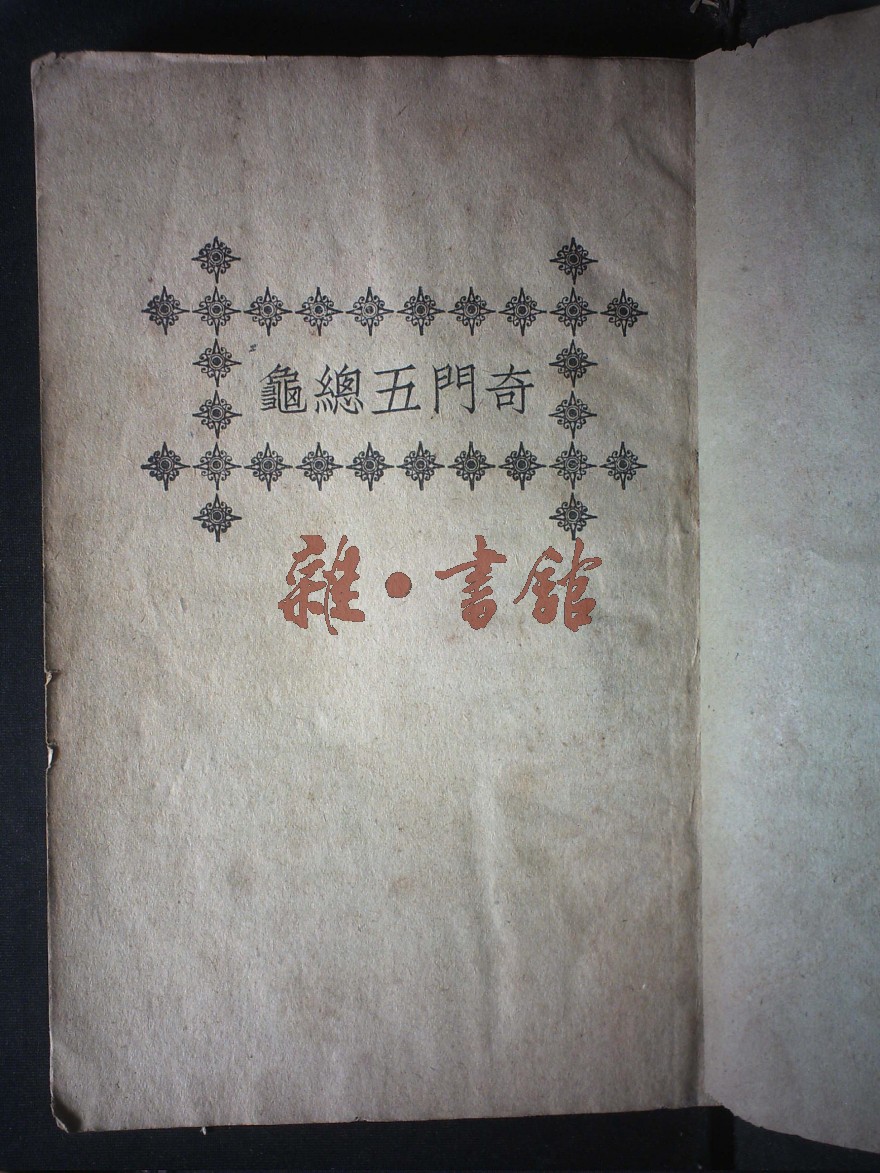 奇門五總龜
雜·書館